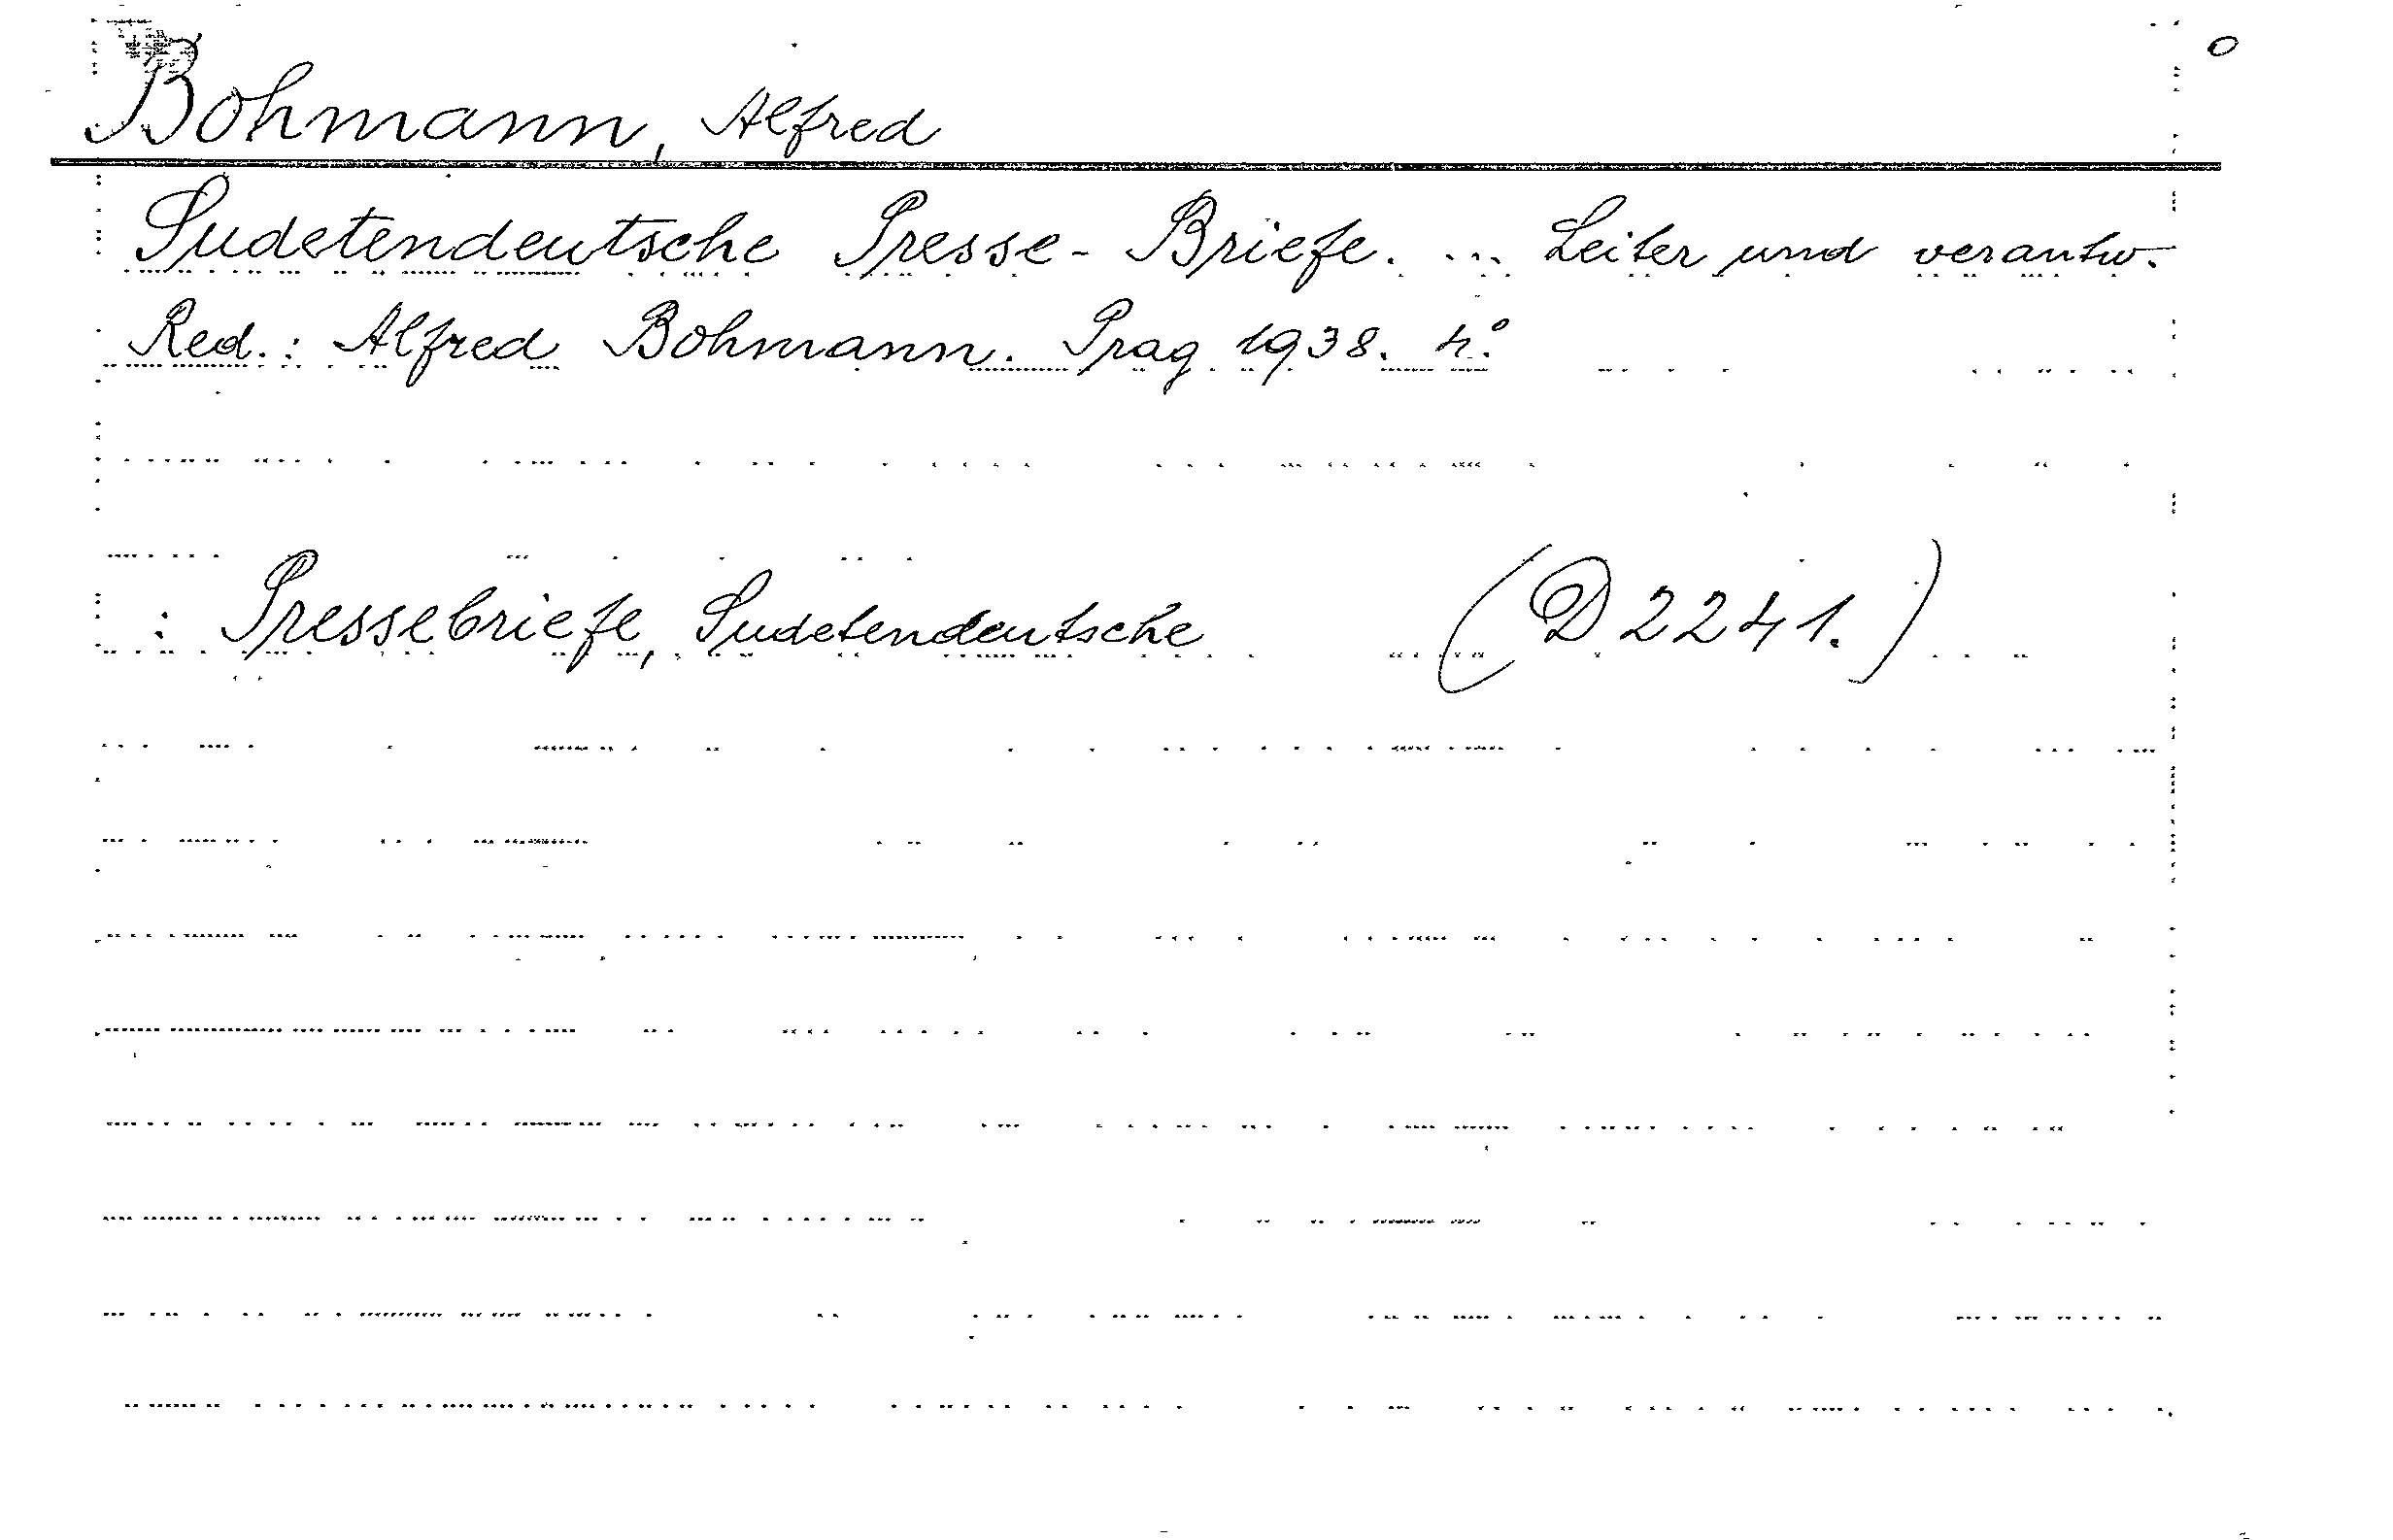 o
Bohmann, Alfred
Sudetendeutsche Presse-Briefe. ... Leiter und verantw.
Red.: Alfred Bohmann. Prag 1938. 4°.
: Pressebriefe, Sudetendeutsche (D 2241.)